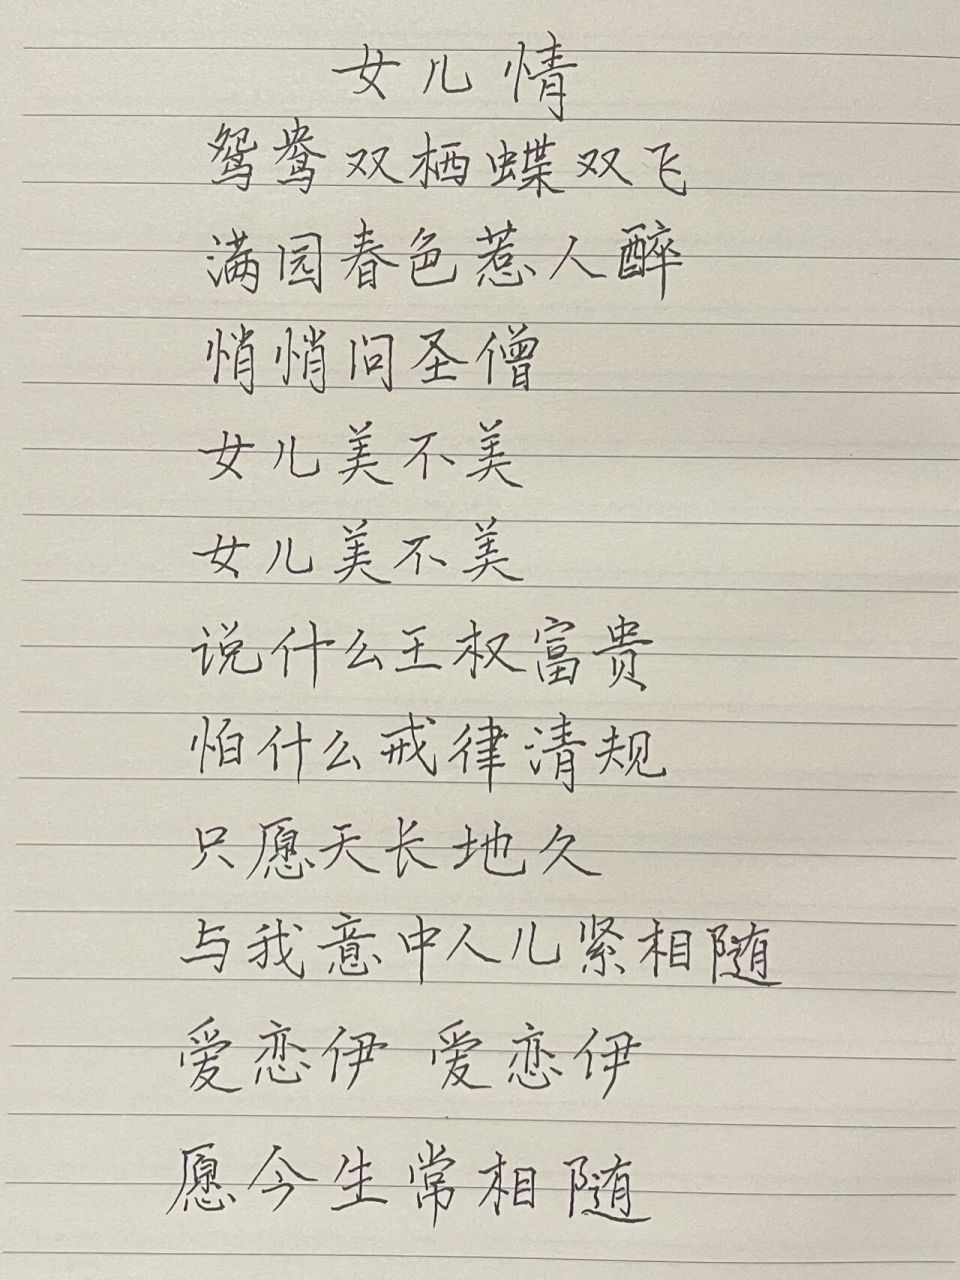 女儿情
鸳鸯双栖蝶双飞
满园春色惹人醉
悄悄问圣僧
女儿美不美
女儿美不美
说什么王权富贵
怕什么戒律清规
只愿天长地久
与我意中人儿紧相随
爱恋伊 爱恋伊
愿今生常相随